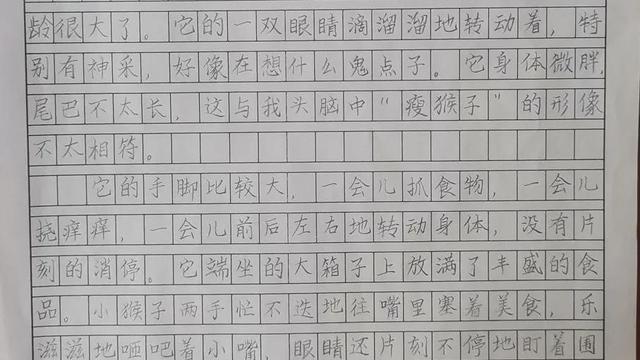 龄很大了。它的一双眼睛滴溜溜地转动着，特
别有神采，好像在想什么鬼点子。它身体微群，
尾巴不太长，这与我头脑中“瘦猴子”的形像
不太相符。
它的手脚比较大，一会儿抓食物，一会儿
挠痒痒，一会儿前后左右地转动身体，没有片
刻的消停。它端坐的大箱子上放满了丰盛的食
品。小猴子两手忙不迭地往嘴里塞着美食，乐
滋滋地咂吧着小嘴，眼睛还片刻不停地盯着围